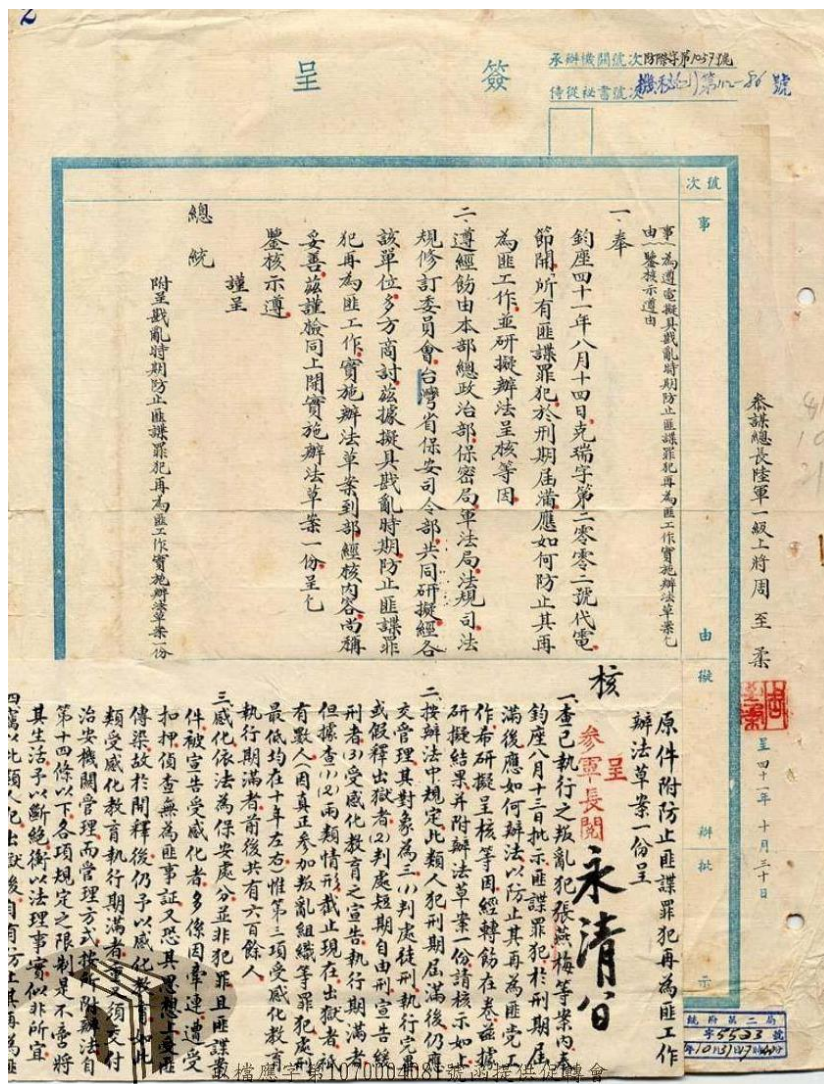 簽呈
承辦機關號次防隆字第1057號
待從秘書號次
號次
事由
擬辦
批示
事由：為遵電擬具戡亂時期防止匪諜罪犯再為匪工作實施辦法草案乞
鑒核示遵由
一、奉
鈞座四十一年八月十四日克瑞字第二零零二號代電
節開所有匪諜罪犯於刑期屆滿應如何防止其再
為匪工作並研擬辦法呈核等因
二、遵經飭由本部總政治部保密局軍法局法規司法
規修訂委員會台灣省保安司令部共同研擬經各
該單位多方商討茲據擬具戡亂時期防止匪諜罪
犯再為匪工作實施辦法草案到部經核內容尚稱
妥善茲謹檢同上開實施辦法草案一份呈乞
鑒核示遵
謹呈
總統
附呈戡亂時期防止匪諜罪犯再為匪工作實施辦法草案一份
參謀總長陸軍一級上將周至柔
呈 四十一年 十月三十日
原件附防止匪諜罪犯再為匪工作
辦法草案一份呈
核
呈
參軍長閱
一、查已執行之叛亂犯張燕梅等案內奉
鈞座八月十三日批示匪諜罪犯於刑期屆
滿後應如何辦法以防止其再為匪黨工
作希研擬呈核等因經轉飭在卷茲據
研擬結果并附辦法草案一份請核示如上
二、按辦法中規定此類人犯刑期屆滿後仍應
交管理其對象為三(1)判處徒刑執行完畢
或假釋出獄者(2)判處短期自由刑宣告緩
刑者(3)受感化教育之宣告執行期滿者
但據查(1)(2)兩類情形截止現在出獄者祇
有數人(因真正參加叛亂組織等罪犯處刑
最低均在十年左右)惟第三項受感化教育
執行期滿者前後共有六百餘人
三、感化依法為保安處分並非犯罪且匪諜案
件被宣告受感化者多係因牽連遭受
扣押偵查無為匪事証又恐其思想上受匪
傳染故於開釋後仍予以感化教育如此
類受感化教育執行期滿者須交付
治安機關管理而管理方式按所附辦法自
第十四條以下各項規定之限制是不啻將
其生活予以斷絕衡以法理事實似非所宜
5523號
檔應字第1070004081號函提供促轉會